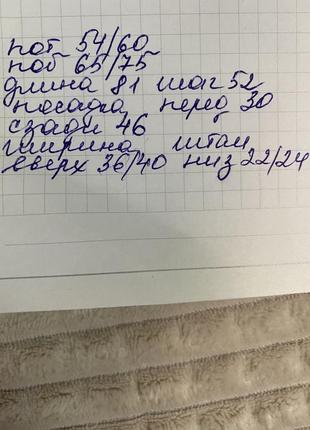 пот 54/60
поб 65/75
длина 81 шаг 52
посадка перед 30
сзади 46
ширина штан
вверх 36/40 низ 22/24